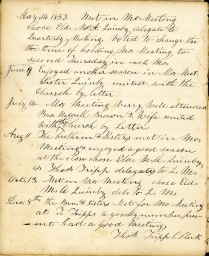 May 14 1853 Met in Mo Meeting
chose Eld. M. H. Quimby delegate to
Quarterly Meeting. Voted to change the
the time of holding Mo Meeting to
second Thursday in each Mo
June 9 Enjoyed another season in Mo Meet
Sister Quimby united with the
Church by letter
July 14 Mo Meeting very well attended
Bro Newell Brown & wife united
with Church by Letter
Aug 11 The brethren & sisters met in Mo
Meeting & enjoyed a good season
at the close chose Eld M. Quimby
& Thos Tripp delegates to Q M
Oct 13 Met in Mo Meeting chose Eld
M. Quimby del. to Q M
Dec 8th the Bren & Sisters Met for Mo Meeting
at T. Tripps a goodly number pres-
ent had a good meeting
Thos Tripp C. Clerk